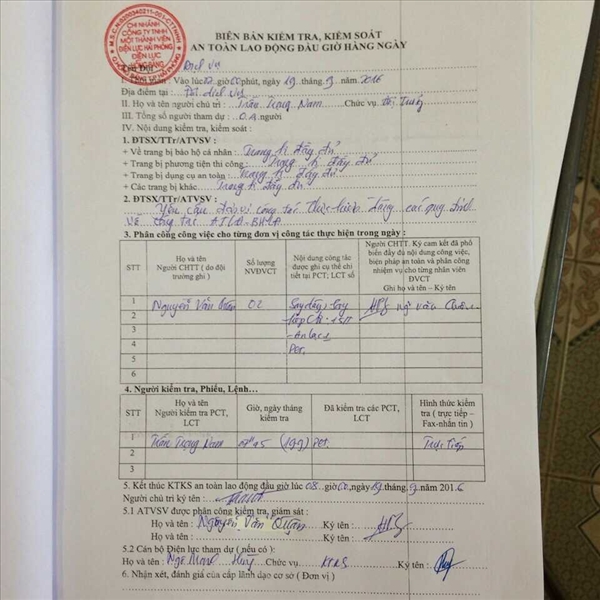 M.S.C.N:0200340211-001-CTTNHH
CHI NHÁNH
CÔNG TY TNHH
MỘT THÀNH VIÊN
ĐIỆN LỰC HẢI PHÒNG
ĐIỆN LỰC
BIÊN BẢN KIỂM TRA, KIỂM SOÁT
AN TOÀN LAO ĐỘNG ĐẦU GIỜ HÀNG NGÀY
Dịch vụ
Vào lúc giờ 00 phút, ngày 19 tháng 9 năm 2016
Địa điểm tại: Đội dịch vụ
II. Họ và tên người chủ trì: Trần Trọng Nam Chức vụ: Đội Trưởng
III. Tổng số người tham dự: 04 người
IV. Nội dung kiểm tra, kiểm soát:
1. ĐTSX/TTr/ATVSV:
+ Về trang bị bảo hộ cá nhân: Trang bị đầy đủ
+ Trang bị phương tiện thi công: Trang bị đầy đủ
+ Trang bị dụng cụ an toàn: Trang bị đầy đủ
+ Các trang bị khác: Trang bị đầy đủ
2. ĐTSX/TTr/ATVSV:
Yêu cầu đơn vị công tác thực hiện đúng các quy định
về công tác ATLĐ-BHLĐ
3. Phân công công việc cho từng đơn vị công tác thực hiện trong ngày:
STT Họ và tên Người CHTT (do đội trưởng ghi) Số lượng NVĐVCT Nội dung công tác được ghi cụ thể chi tiết tại PCT; LCT số Người CHTT. Ký cam kết đã phổ biến đầy đủ nội dung công việc, biện pháp an toàn và phân công nhiệm vụ cho từng nhân viên ĐVCT Ghi họ và tên – Ký tên
1 Nguyễn Văn Quân 02
2
3 An Lạc 1
4 PCT.
5
6
4. Người kiểm tra, Phiếu, Lệnh…
STT Họ và tên Người kiểm tra PCT, LCT Giờ, ngày tháng kiểm tra Đã kiểm tra các PCT, LCT Hình thức kiểm tra (trực tiếp – Fax-nhắn tin)
1 Trần Trọng Nam (19/9) PCT. Trực tiếp
2
3
5. Kết thúc KTKS an toàn lao động đầu giờ lúc 08 giờ 00, ngày 19 tháng 9 năm 2016
Người chủ trì ký tên:
5.1 ATVSV được phân công kiểm tra, giám sát:
Họ và tên: Nguyễn Văn Quân Ký tên:
Họ và tên: Ký tên:
5.2 Cán bộ Điện lực tham dự (nếu có):
Họ và tên: Ngô Mạnh Chức vụ: KTKS Ký tên:
6. Nhận xét, đánh giá của cấp lãnh đạo cơ sở (Đơn vị)